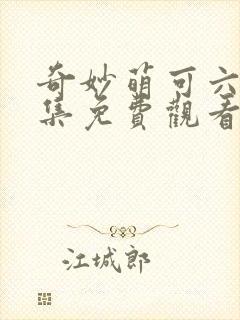 奇妙萌可六
集免費觀看
江城郎